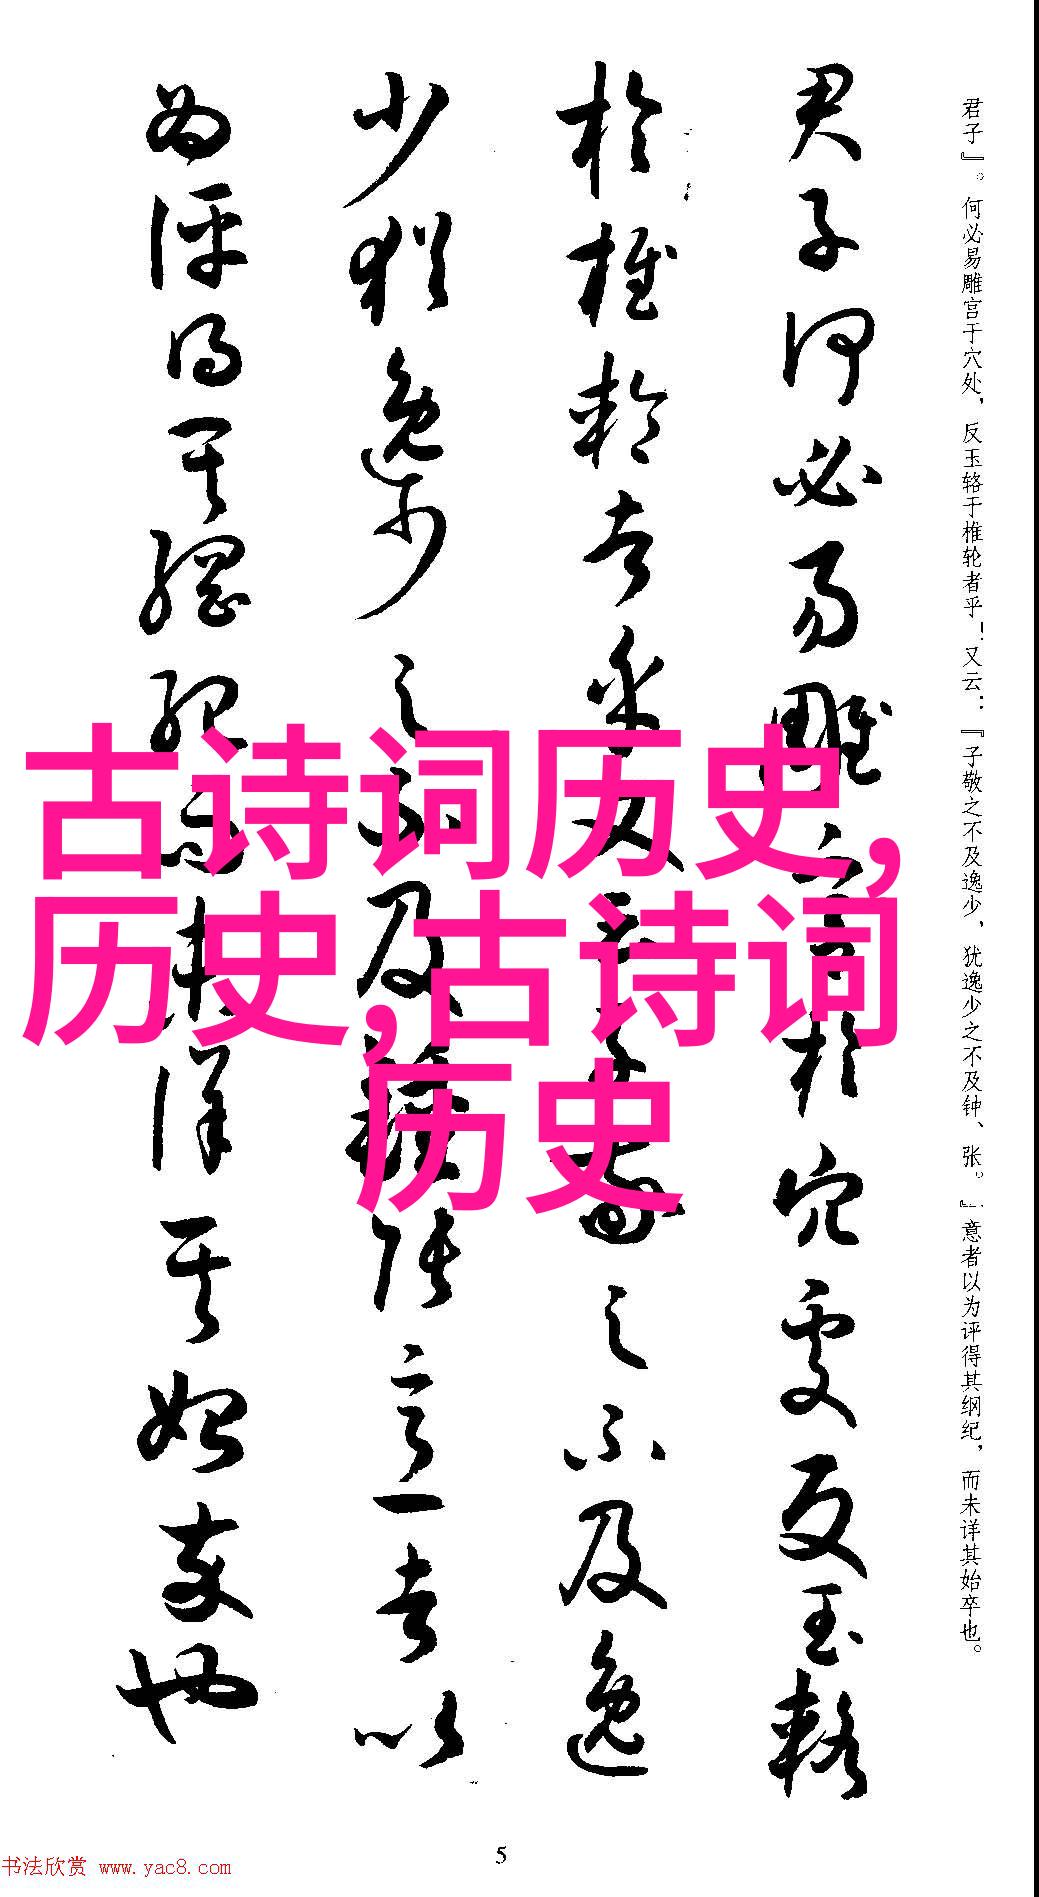 君子何必易雕宫于穴处，反玉辂于椎轮者乎！又云：『子敬之不及逸少，犹逸少之不及钟、张。』意者以为评得其纲纪，而未详其始卒也。
君子』。何必易雕宫于穴处，反玉辂于椎轮者乎！又云：『子敬之不及逸少，犹逸少之不及钟、张。』意者以为评得其纲纪，而未详其始卒也。
古诗词历史,
历史,古诗词
历史
5
书法欣赏 www.yac8.com